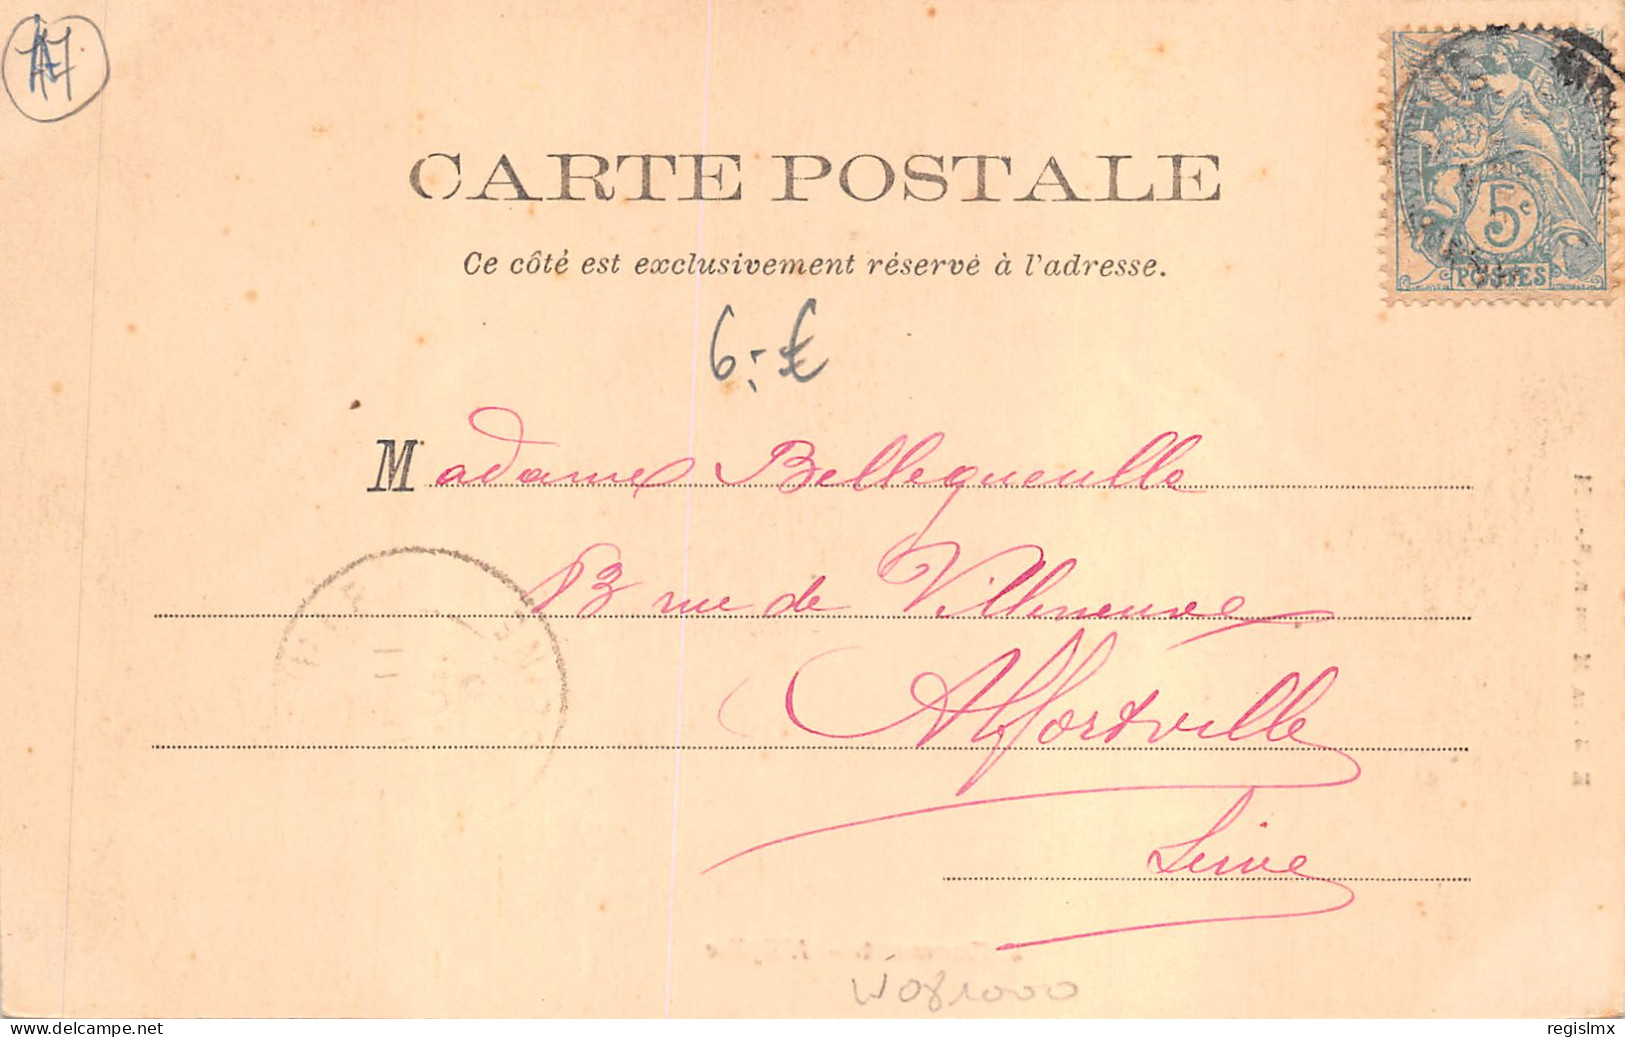 CARTE POSTALE
Ce côté est exclusivement réservé à l'adresse.
5c
POSTES
6,-€
Madame Bellegueulle
13 rue de Villeneuve
Alfortville
Seine
W081000
delcampe.net
regislmx